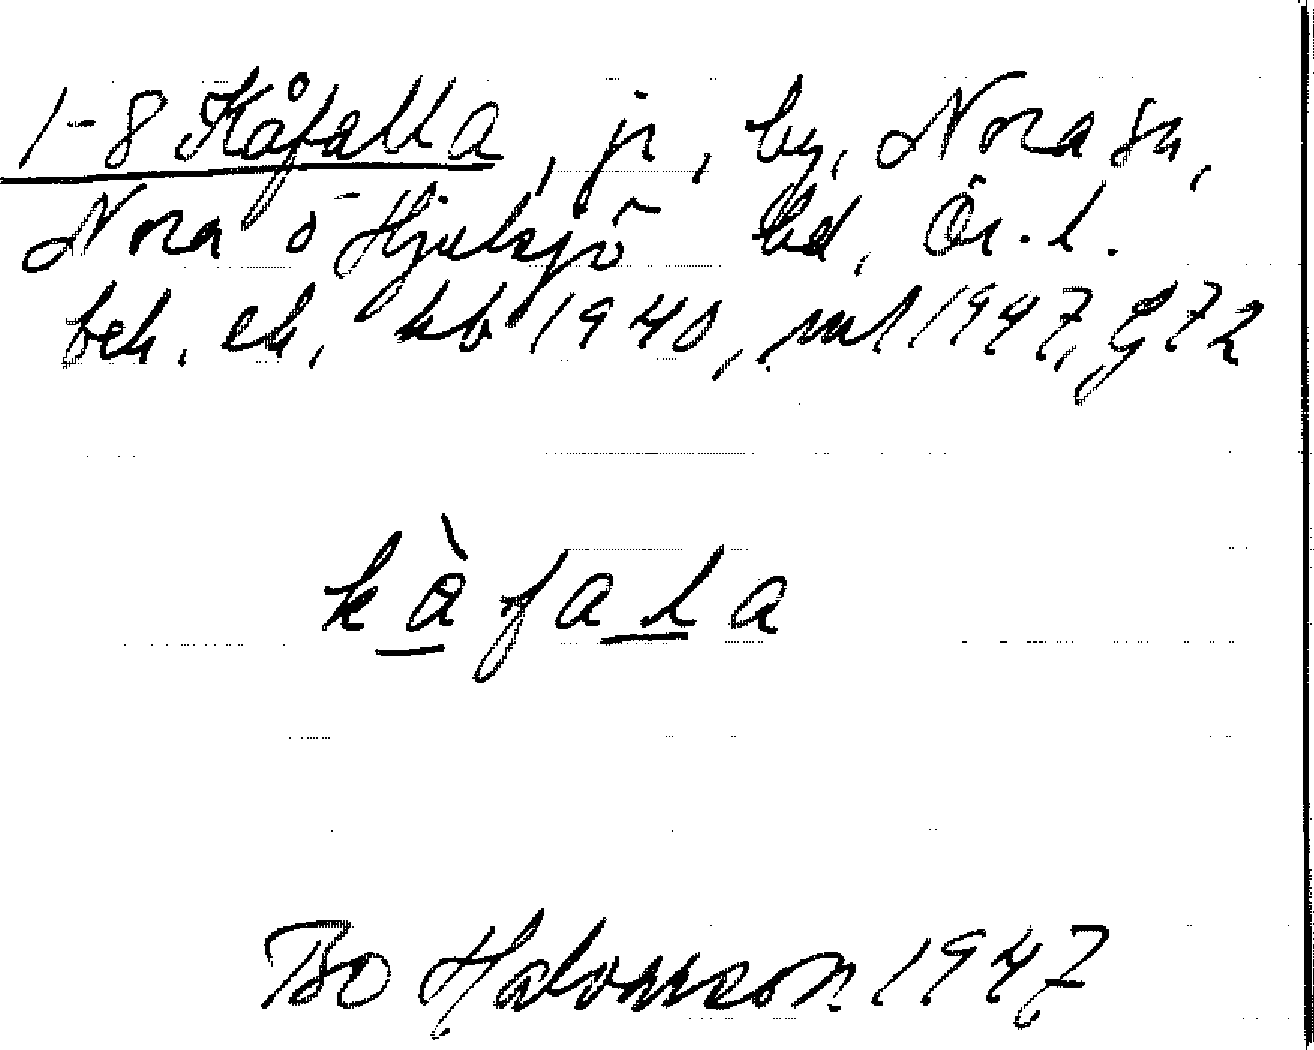 1-8 Kåfalla, jr, by, Nora sn,
Nora o Hjulsjö hd, Ör. l.
beh. ek, kb 1940, ml 1947, G72
kàfala
Bo Halvarsson 1947